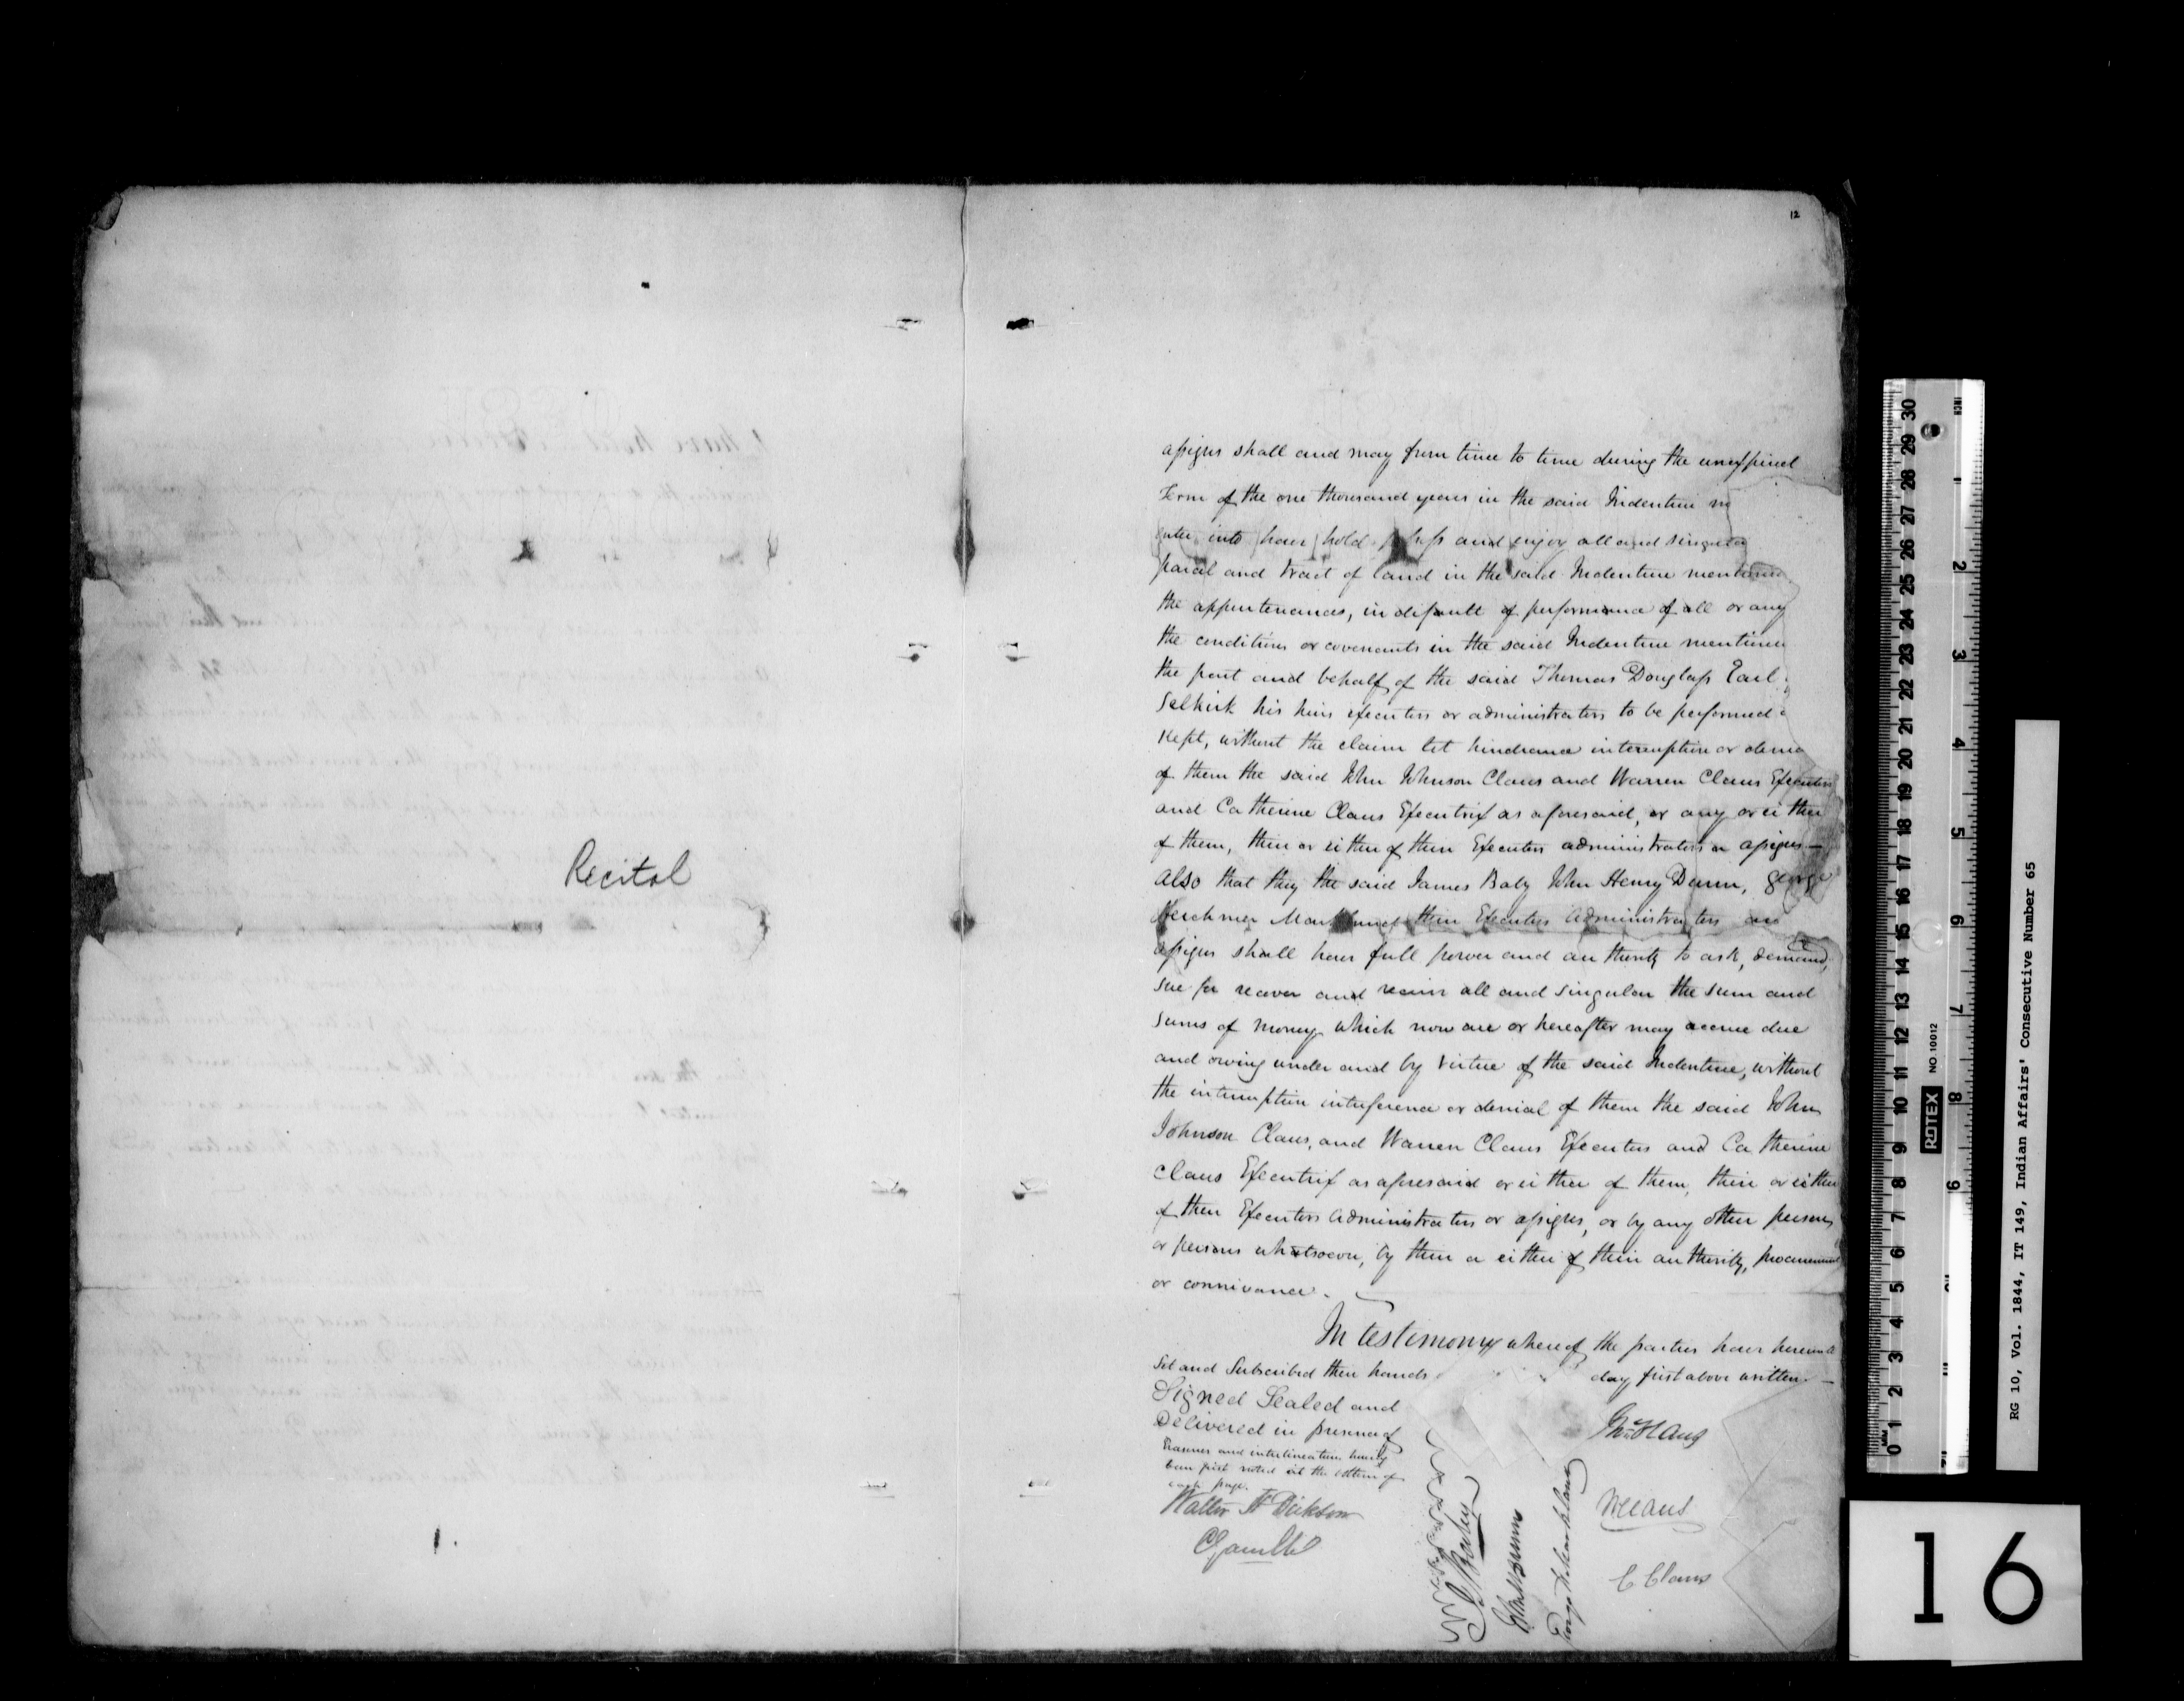 Recital
12
assigns shall and may from time to time during the unexpired
Term of the one thousand years in the said Indenture
enter into have hold possess and enjoy all and singular
parcel and tract of land in the said Indenture mentioned
the appurtenances, in default of performance of all or any
the conditions or covenants in the said Indenture mentioned
the part and behalf of the said Thomas Douglass Earl
Selkirk his heirs executors or administrators to be performed
Kept, without the claim let hindrance interruption or
of them the said John Johnson Claus and Warren Claus Executors
and Catherine Claus Executrix as aforesaid, or any or either
of them, their or either of their Executors administrators or assigns —
Also that they the said James Baby John Henry Dunn, George
Herchmer Markland their Executors Administrators and
assigns shall have full power and authority to ask, demand,
sue for recover and receive all and singular the sum and
sums of money which now are or hereafter may accrue due
and owing under and by virtue of the said Indenture, without
the interruption interference or denial of them the said John
Johnson Claus, and Warren Claus Executors and Catherine
Claus Executrix as aforesaid or either of them, their or either
of their Executors Administrators or assigns, or by any other person
or persons whatsoever, by their or either of their authority, procurement
or connivance.
In testimony whereof the parties have hereunto
Set and Subscribed their hands day first above written —
Signed Sealed and
Delivered in presence of
Erasures and interlineations having
been first noted at the bottom of
each page.
Walter H Dickson
W Claus
C Claus
NO 10012
ROTEX
RG 10, Vol. 1844, IT 149, Indian Affairs' Consecutive Number 65
16